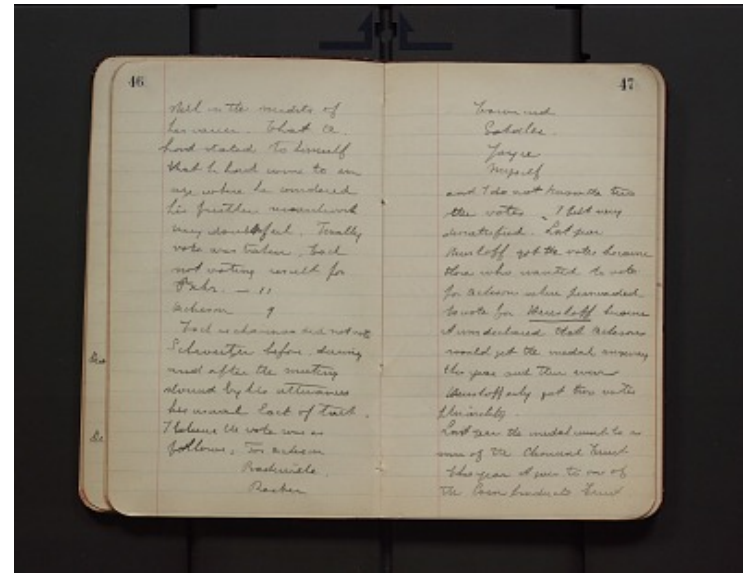 46
still in the midsts of
his career. That A.
had stated to himself
that he had come to an
age where he considered
his further research work
very doubtful. Finally
vote was taken, Loeb
not voting result for
— 11
Acheson 9
Loeb as chairman did not vote
Schweitzer before, during
and after the meeting
showed by his utterances
his usual lack of tact.
I believe the vote was as
follows: For Acheson
Baskerville
Parker
47
Townsend
Sadtler
Joyce
Myself
and I do not know the two
other votes. I felt very
dissatisfied. Last year
Herreshoff got the votes because
those who wanted to vote
for Acheson where persuaded
to vote for Herreshoff because
it was declared that Acheson
would get the medal anyway
this year and then even
Herreshoff only got two votes
plurality
Last year the medal went to a
man of the Chemical Trust
this year it goes to one of
the Corn products Trust